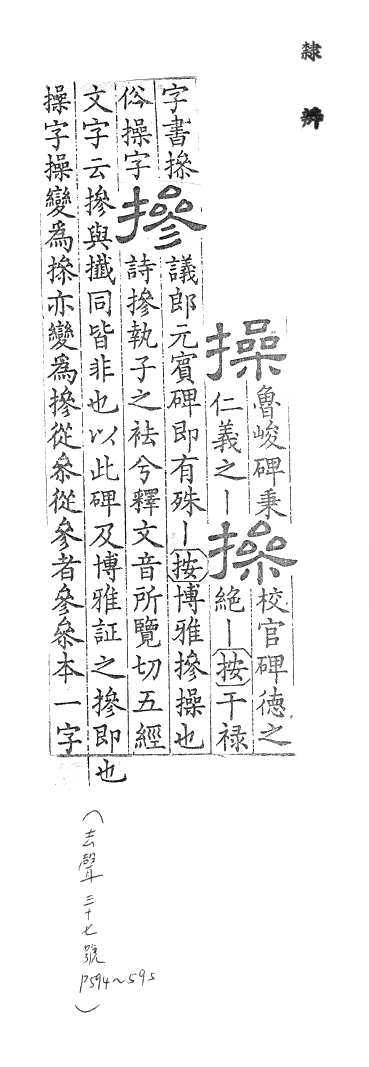 隸辨
操
魯峻碑秉
仁義之丨
㨆
校官碑德之
絶丨按干禄
字書㨆
俗操字
摻
議郎元賓碑即有殊丨按博雅摻操也
詩摻執子之袪兮釋文音所覽切五經
文字云摻與攕同皆非也以此碑及博雅証之摻即也
操字操變爲㨆亦變爲摻從喿從參者參喿本一字
(去聲三十七號 P594~595)